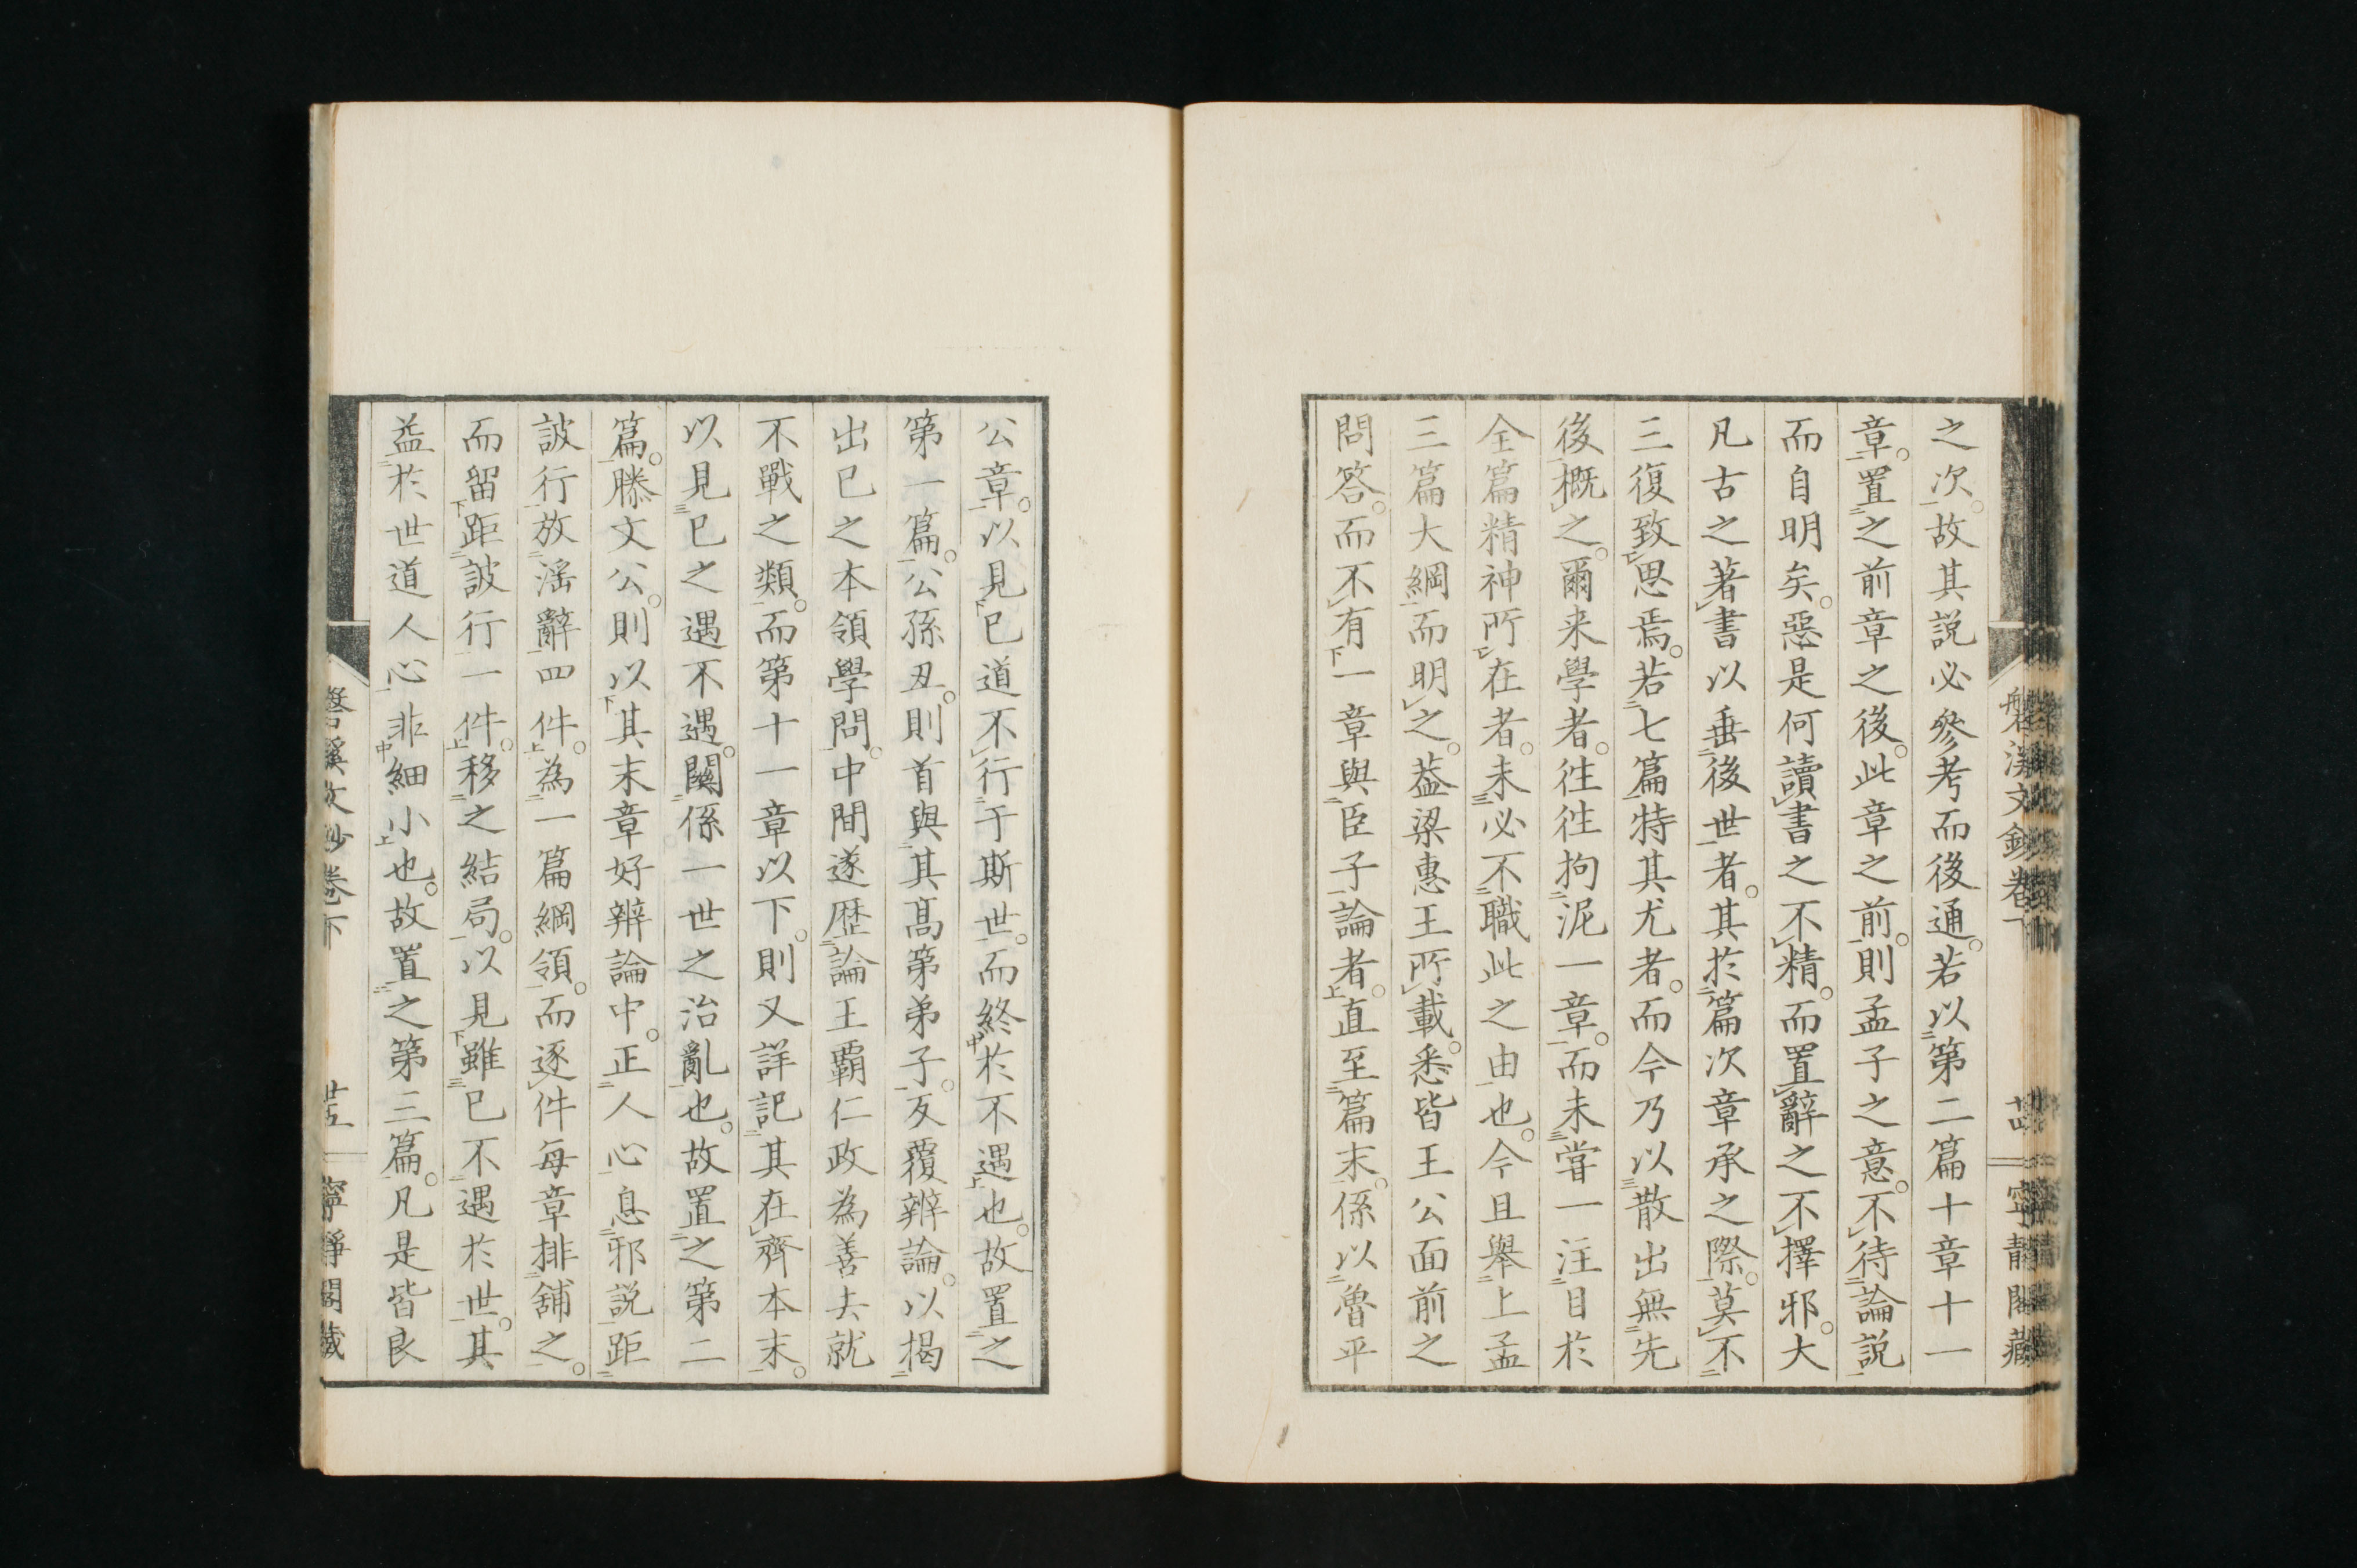 之次。故其説必參考而後通。若以第二篇十章十一
章。置之前章之後。此章之前。則孟子之意。不待論説
而自明矣。惡是何讀書之不精。而置辭之不擇邪。大
凡古之著書以垂後世者。其於篇次章承之際。莫不
三復致思焉。若七篇特其尤者。而今乃以散出無先
後概之。爾来學者。徃徃拘泥一章。而未嘗一注目於
全篇精神所在者。未必不職此之由也。今且舉上孟
三篇大綱而明之。葢梁惠王所載。悉皆王公面前之
問答。而不有一章與臣子論者。直至篇末。係以魯平
公章。以見已道不行于斯世。而終於不遇也。故置之
第一篇。公孫丑。則首與其髙第弟子。反覆辨論。以揭
出已之本領學問。中間遂歴論王覇仁政為善去就
不戰之類。而第十一章以下。則又詳記其在齊本末。
以見已之遇不遇。關係一世之治亂也。故置之第二
篇。滕文公。則以其末章好辨論中。正人心息邪説距
詖行放滛辭四件。為一篇綱領。而逐件每章排舖之。
而留距詖行一件。移之結局。以見雖已不遇於世。其
益於世道人心。非細小也。故置之第三篇。凡是皆良
磐溪文鈔卷下
寧靜閣藏